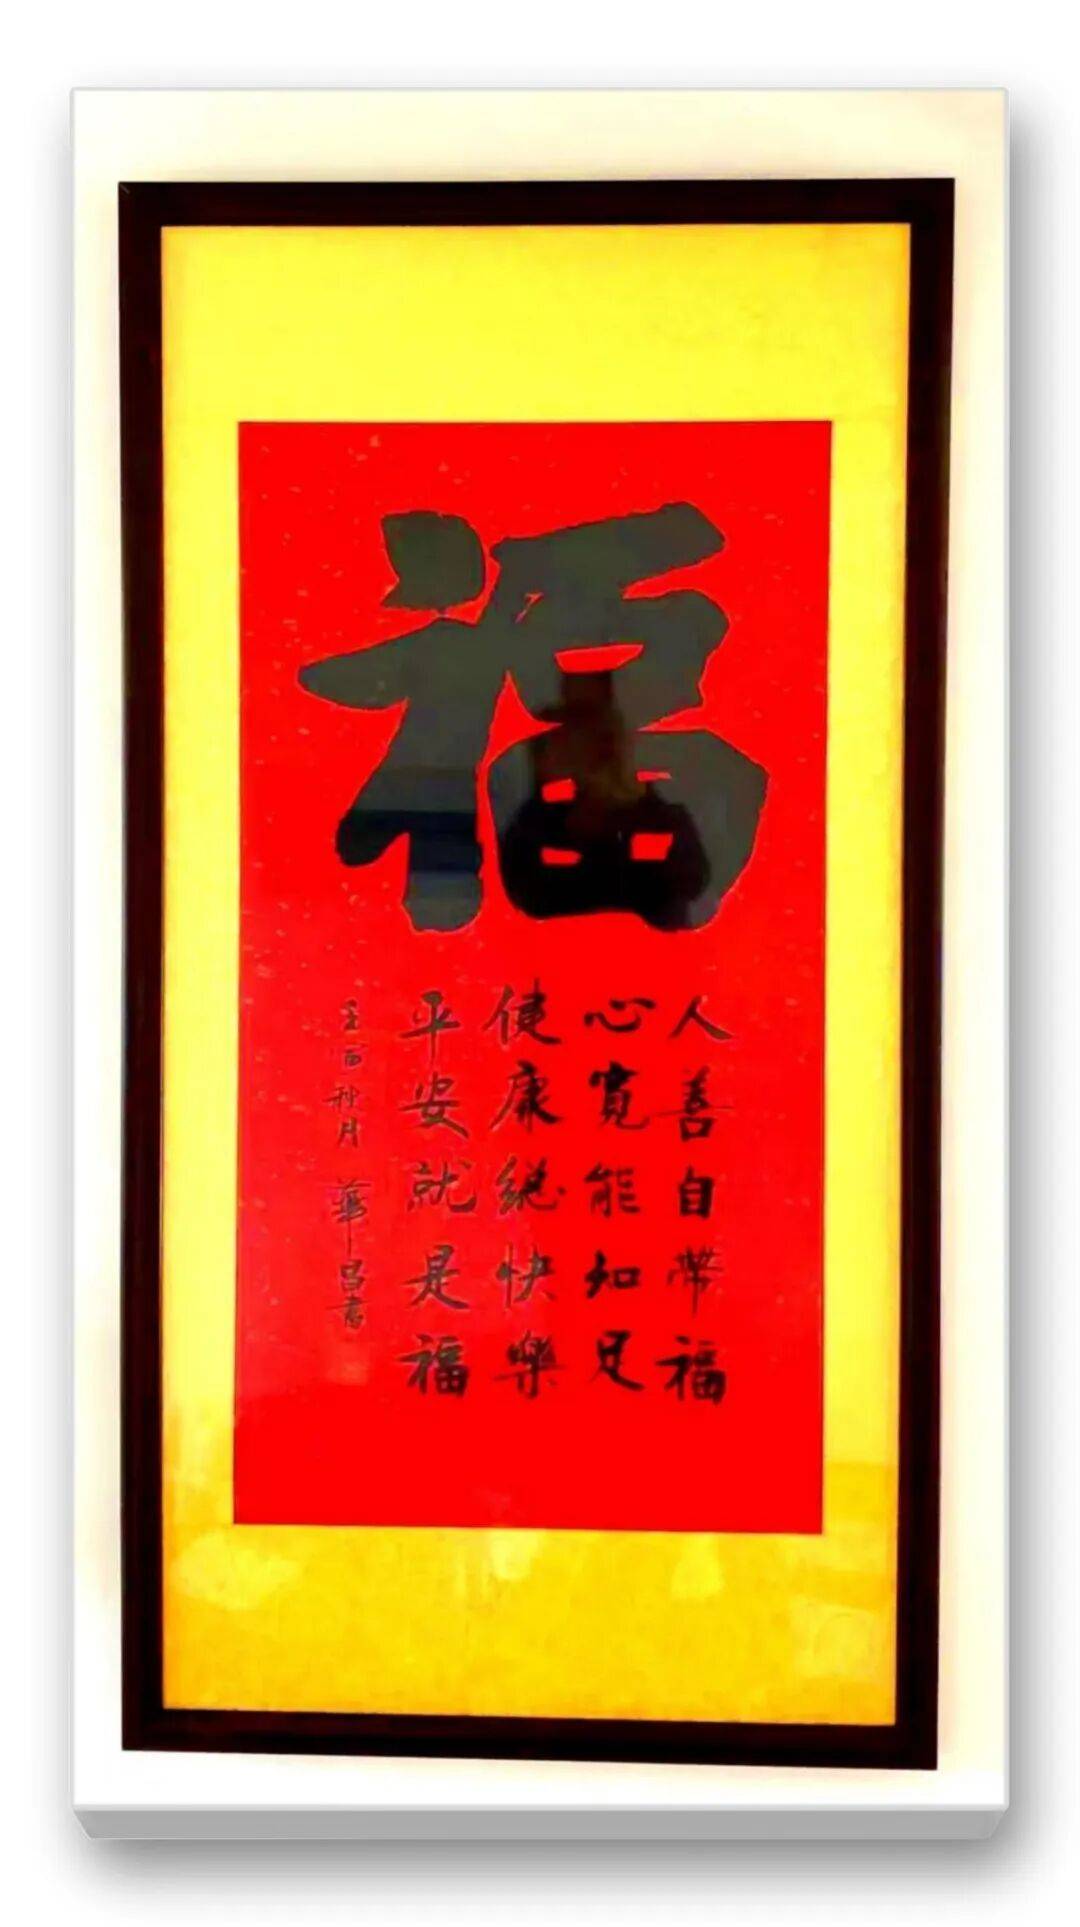 福
人善自帶福
心寬能知足
健康總快樂
平安就是福
秋月 華昌書